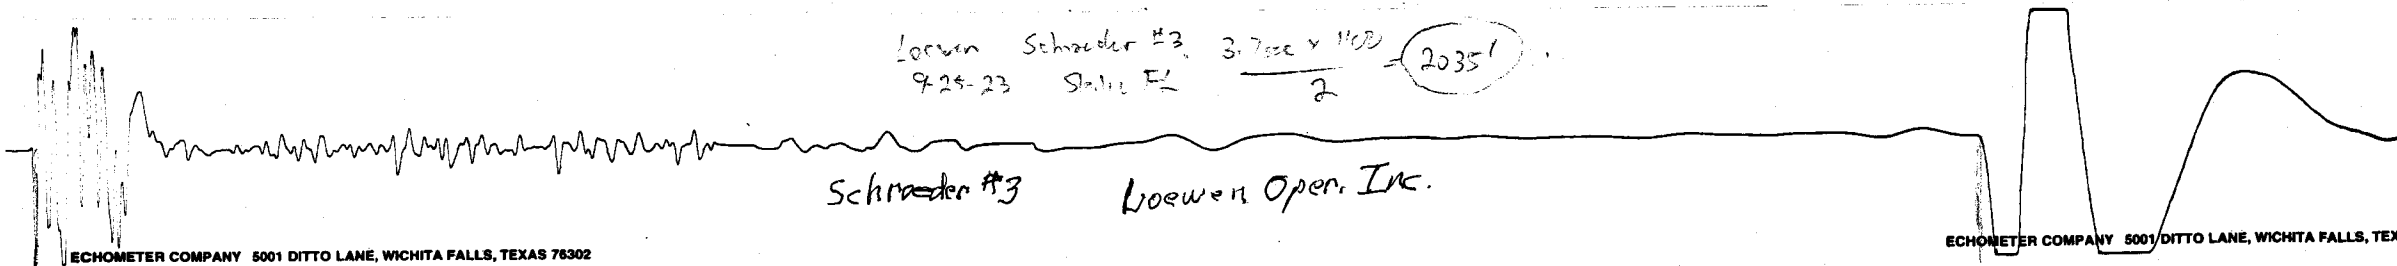 Loewen Schraeder #3. 3.7sec x 1100 = 2035'
9-25-23 Static FL 2
Schraeder #3 Loewen Oper. Inc.
ECHOMETER COMPANY 5001 DITTO LANE, WICHITA FALLS, TEXAS 76302
ECHOMETER COMPANY 5001 DITTO LANE, WICHITA FALLS, TEX